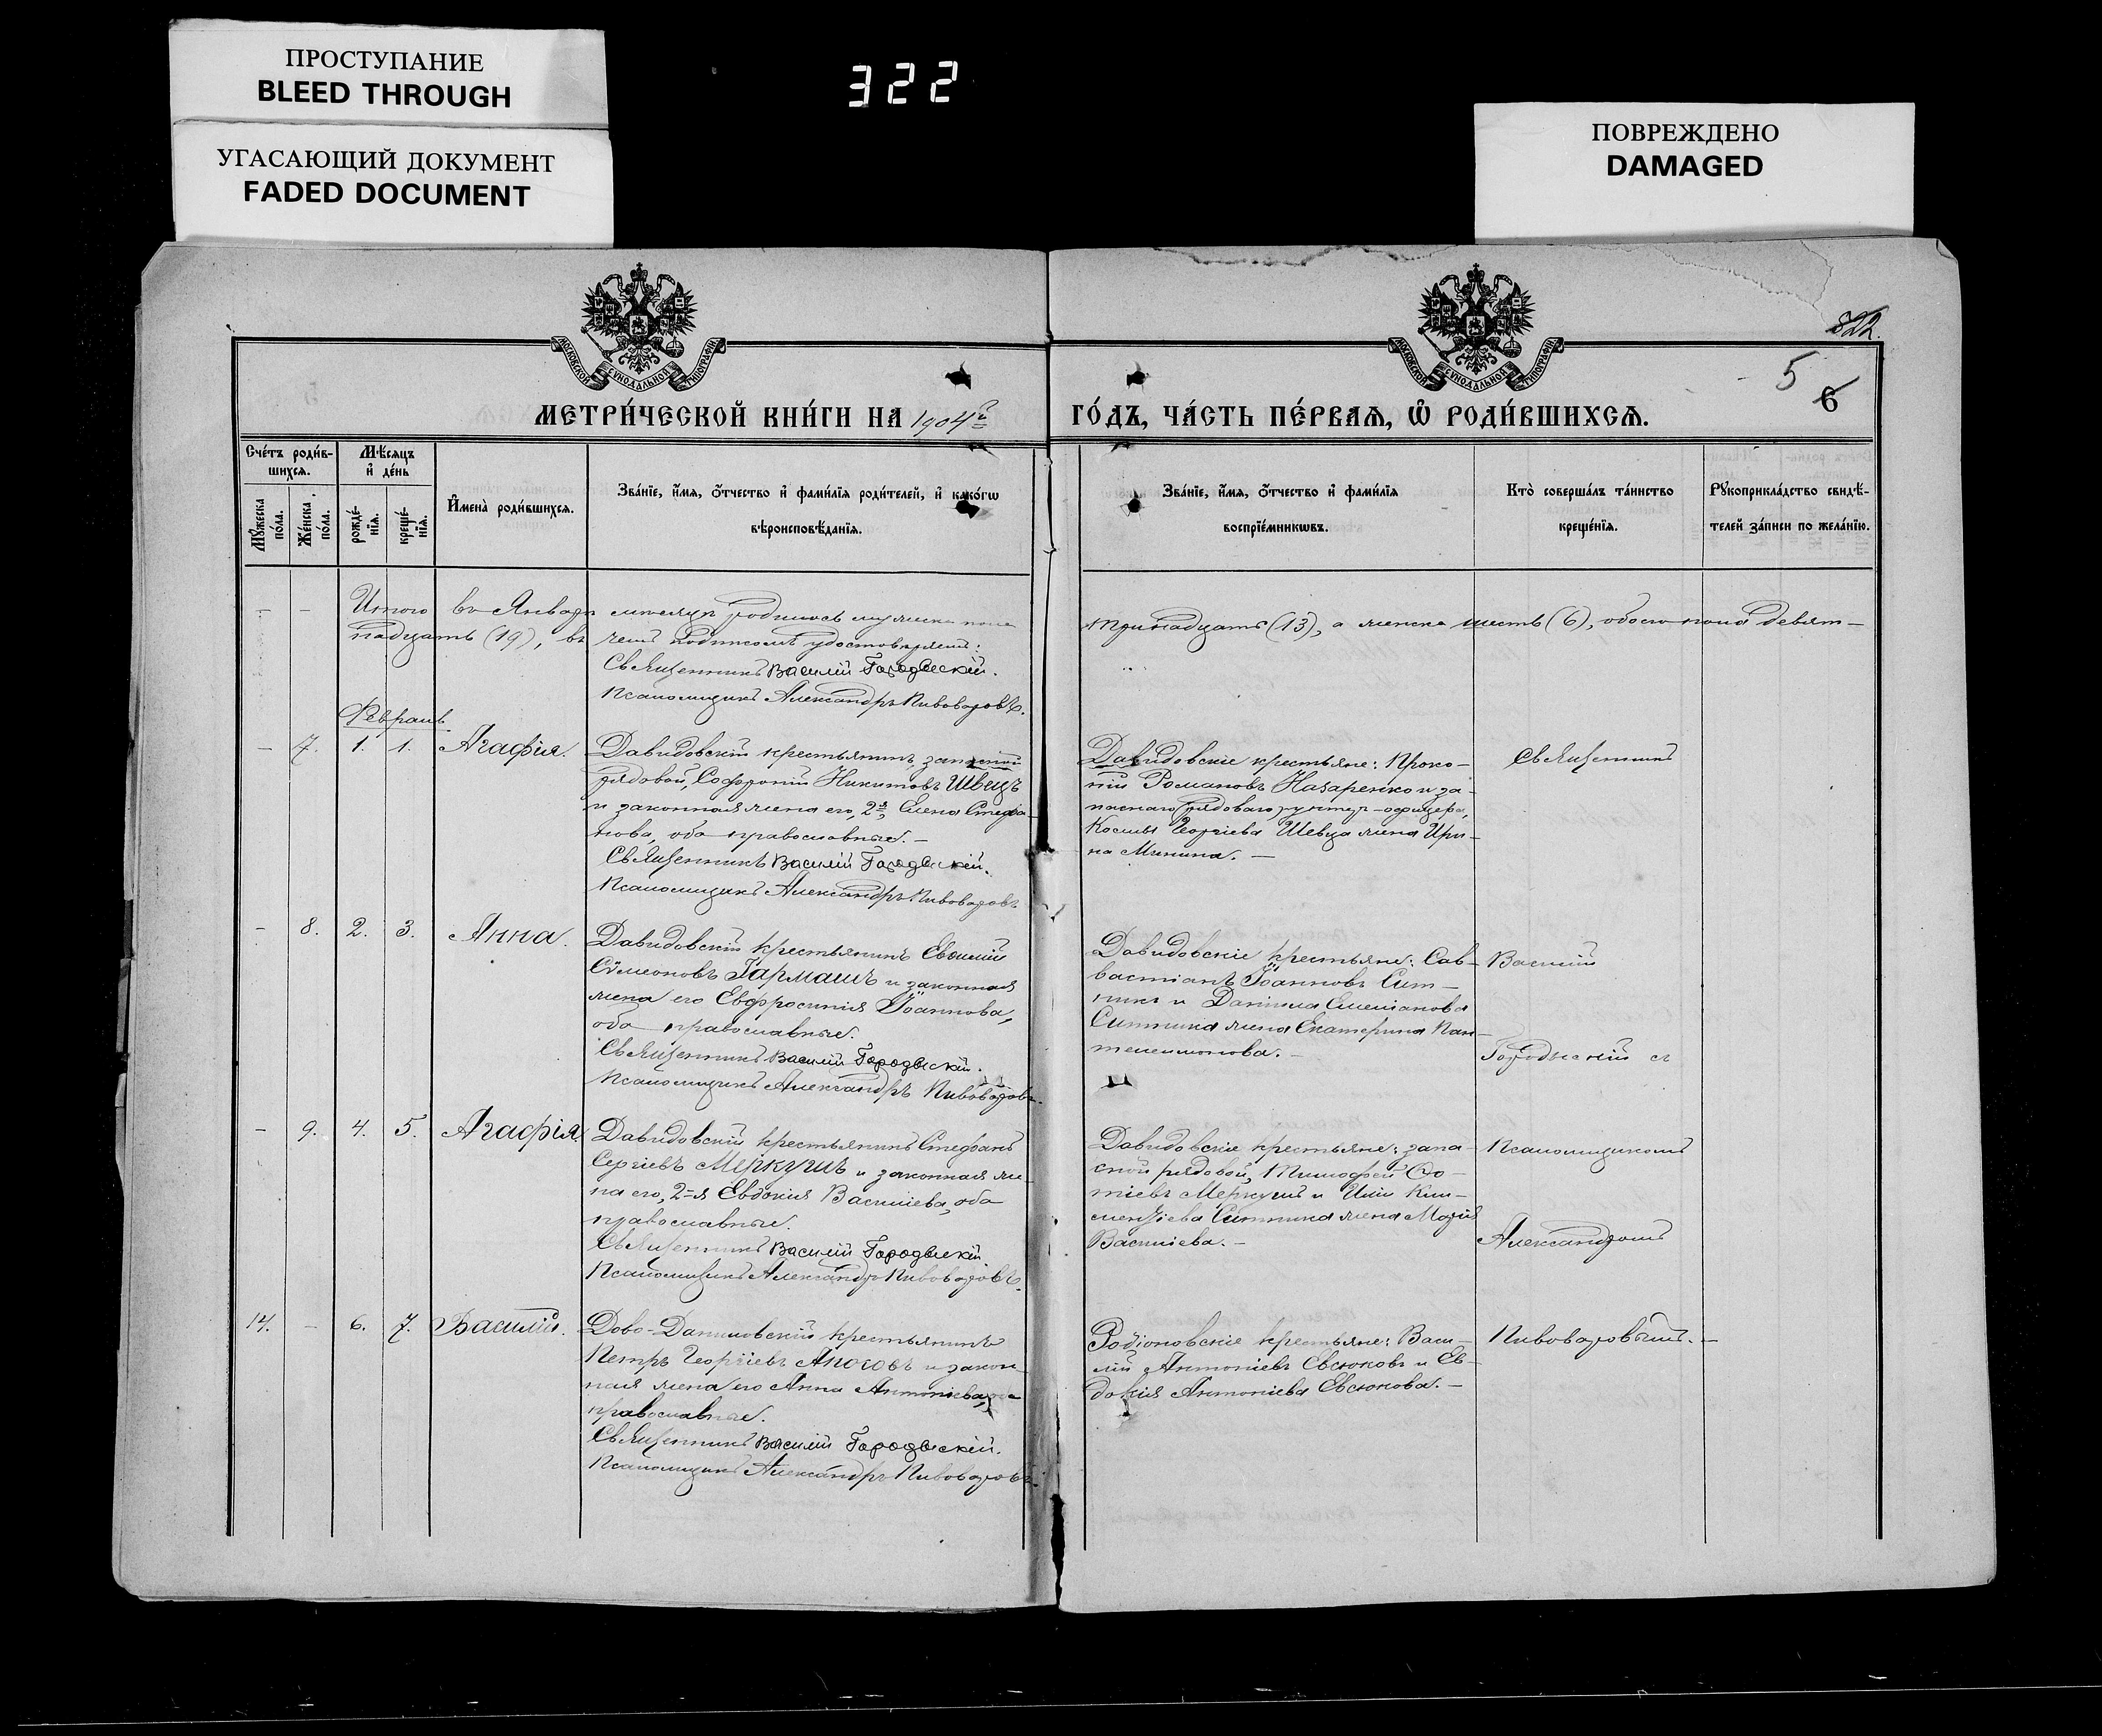 ПРОСТУПАНИЕ
BLEED THROUGH
УГАСАЮЩИЙ ДОКУМЕНТ
FADED DOCUMENT
322
ПОВРЕЖДЕНО
DAMAGED
МОСКОВСКОЙ СѴНОДАЛЬНОЙ ТИПОГРАФІИ
МОСКОВСКОЙ СѴНОДАЛЬНОЙ ТИПОГРАФІИ
322.
5
6
МЕТРИ́ЧЕСКОЙ КНИ́ГИ НА 1904й
ГО́ДЪ, ЧА́СТЬ ПЕ́РВАЯ, Ѡ РОДИ́ВШИХСЯ.
Сче́тъ роди́в-
шихся.
Мѣ́сяцъ
и҆ де́нь
Му́жеска
по́ла.
Же́нска
по́ла.
рожде́-
нїя.
креще́-
нїя.
И҆мена̀ роди́вшихся.
Зва́нїе, и҆́мя, ѻ҆́тчество и҆ фами́лїя роди́телей, и҆ како́гѡ
вѣроисповѣ́данїя.
Зва́нїе, и҆́мя, ѻ҆́тчество и҆ фами́лїя
воспрїе́мникѡвъ.
Кто̀ соверша́лъ та́инство
креще́нїя.
Рꙋкоприкла́дство свидѣ́-
телей за́писи по жела́нїю.
Итого въ Январѣ мѣсяцѣ родилось мужска пола
тринадцать (13), а женска шесть (6), обоего пола девят-
надцать (19), въ чемъ подписомъ удостовѣряемъ:
Священникъ Василій Городыскій.
Псаломщикъ Александръ Пивоваровъ.
Февраль
- 7. 1. 1. Агафія.
Давидовскій крестьянинъ, запасной
рядовой, Софроній Никитовъ Швецъ
и законная жена его, 2я, Елена Стефа-
нова, оба православные. -
Священникъ Василій Городыскій.
Псаломщикъ Александръ Пивоваровъ
Давидовскіе крестьяне: Проко-
пій Романовъ Назаренко и за-
паснаго рядоваго унтеръ-офицера,
Космы Георгіева Швеца жена Ири-
на Минина. -
Священникъ
- 8. 2. 3. Анна.
Давидовскій крестьянинъ Евѳимій
Сѵмеоновъ Гармашъ и законная
жена его Евфросинія Іоаннова,
оба православные.
Священникъ Василій Городыскій.
Псаломщикъ Александръ Пивоваровъ.
Давидовскіе крестьяне: Сав-
вастіанъ Іоанновъ Сит-
никъ и Даніила
Ситника жена Екатерина Пан-
телеимонова. -
Василій
Городыскій съ
- 9. 4. 5. Агафія.
Давидовскій крестьянинъ Стефанъ
Сергіевъ Меркушъ и законная же-
на его, 2-я Евдокія Василіева, оба
православные.
Священникъ Василій Городыскій
Псаломщикъ Александръ Пивоваровъ.
Давидовскіе крестьяне: запа-
сной рядовой, Тимофей Фо-
тіевъ Меркушъ и Иліи Кли-
ментіева Ситника жена Марія
Василіева. -
Псаломщикомъ
Александромъ
14. - 6. 7. Василій.
Ново-Даниловскій крестьянинъ
Петръ Георгіевъ и закон-
ная жена его Анна Антоніева, оба
православные.
Священникъ Василій Городыскій.
Псаломщикъ Александръ Пивоваровъ
Родіоновскіе крестьяне: Васи-
лій Антоніевъ Евсюковъ и Ев-
докія Антоніева Евсюкова. -
Пивоваровымъ. -